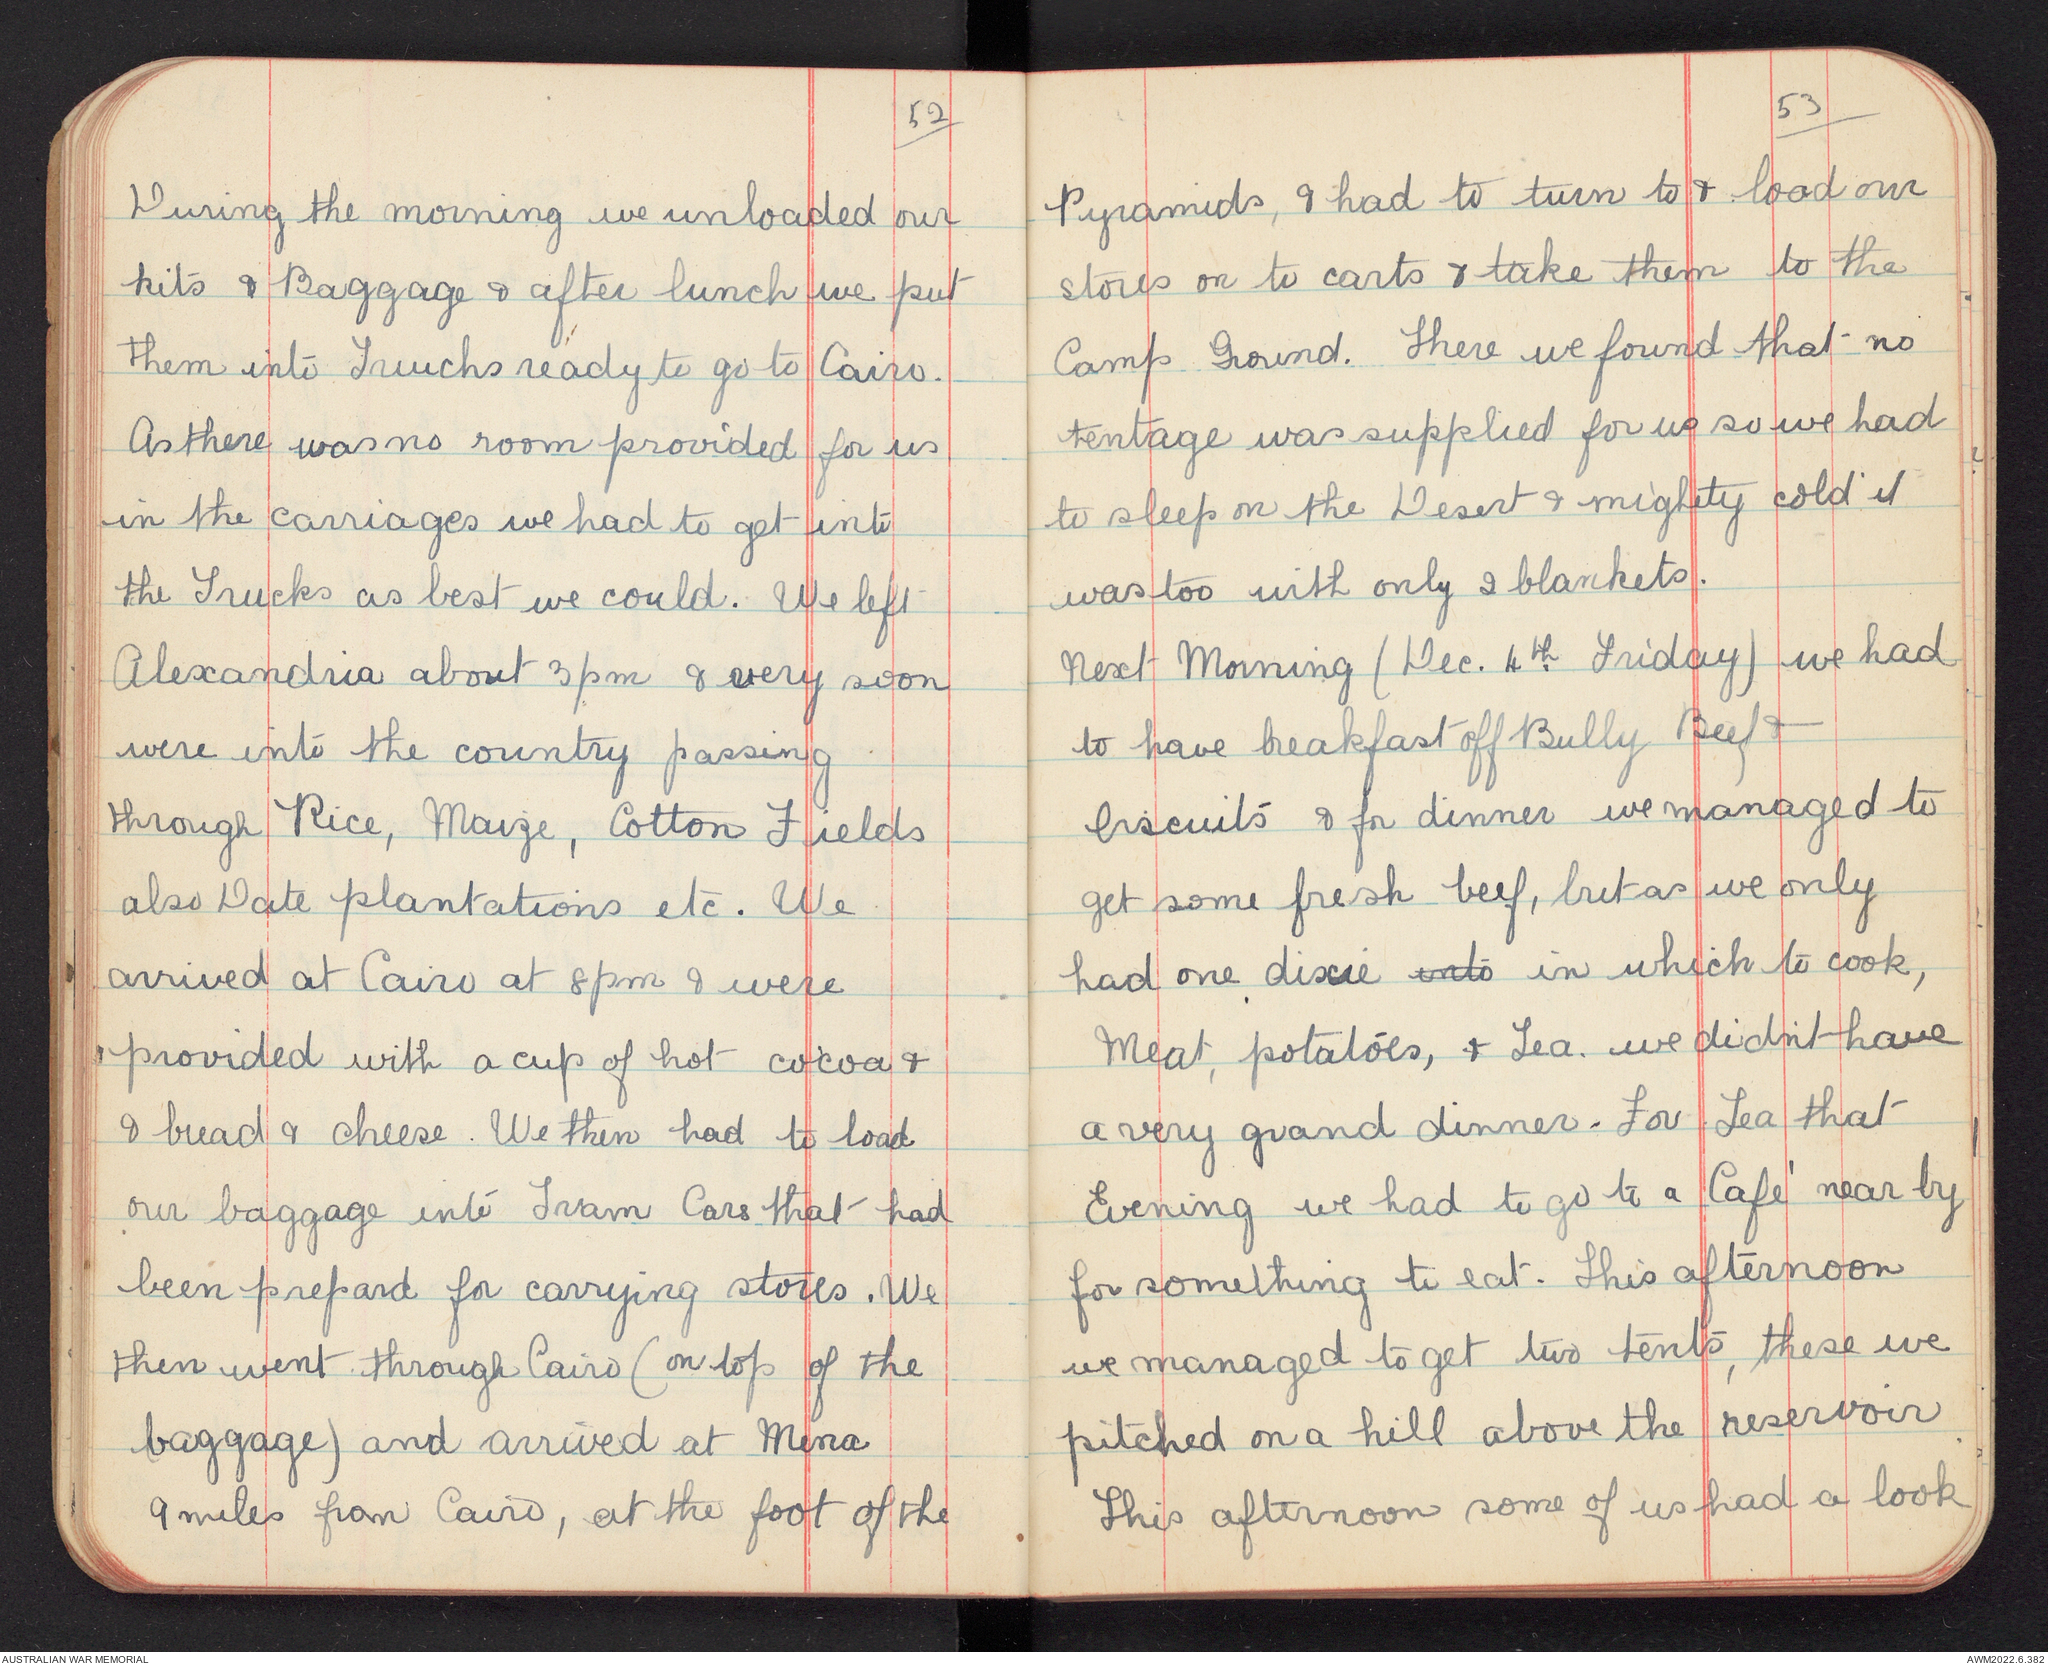 52
During the morning we unloaded our
kits & Baggage & after lunch we put
them into Truucks ready to go to Cairo.
As there was no room provided for us
in the carriages we had to get into
the Trucks as best we could. We left
Alexandria about 3pm & very soon
were into the country passing
through Rice, Maize, Cotton Fields
also Date plantations etc. We
arrived at Cairo at 8pm & were
provided with a cup of hot cocoa &
& bread & cheese. We then had to load
our baggage into Tram Cars that had
been prepard for carrying stores. We
then went through Cairo (on top of the
baggage) and arrived at Mena
9 miles from Cairo, at the foot of the
53
Pyramids, & had to turn to & load our
stores on to carts & take them to the
Camp Ground. There we found that no
tentage was supplied for us so we had
to sleep on the Desert & mighty cold it
was too with only 2 blankets.
Next Morning (Dec. 4th Friday) we had
to have breakfast off Bully Beef &
biscuits & for dinner we managed to
get some fresh beef, but as we only
had one dixie into in which to cook,
Meat, potatoes, & Tea. we didn't have
a very grand dinner. For Tea that
Evening we had to go to a Café near by
for something to eat. This afternoon
we managed to get two tents, these we
pitched on a hill above the reservoir
This afternoon some of us had a look
AUSTRALIAN WAR MEMORIAL
AWM2022.6.382